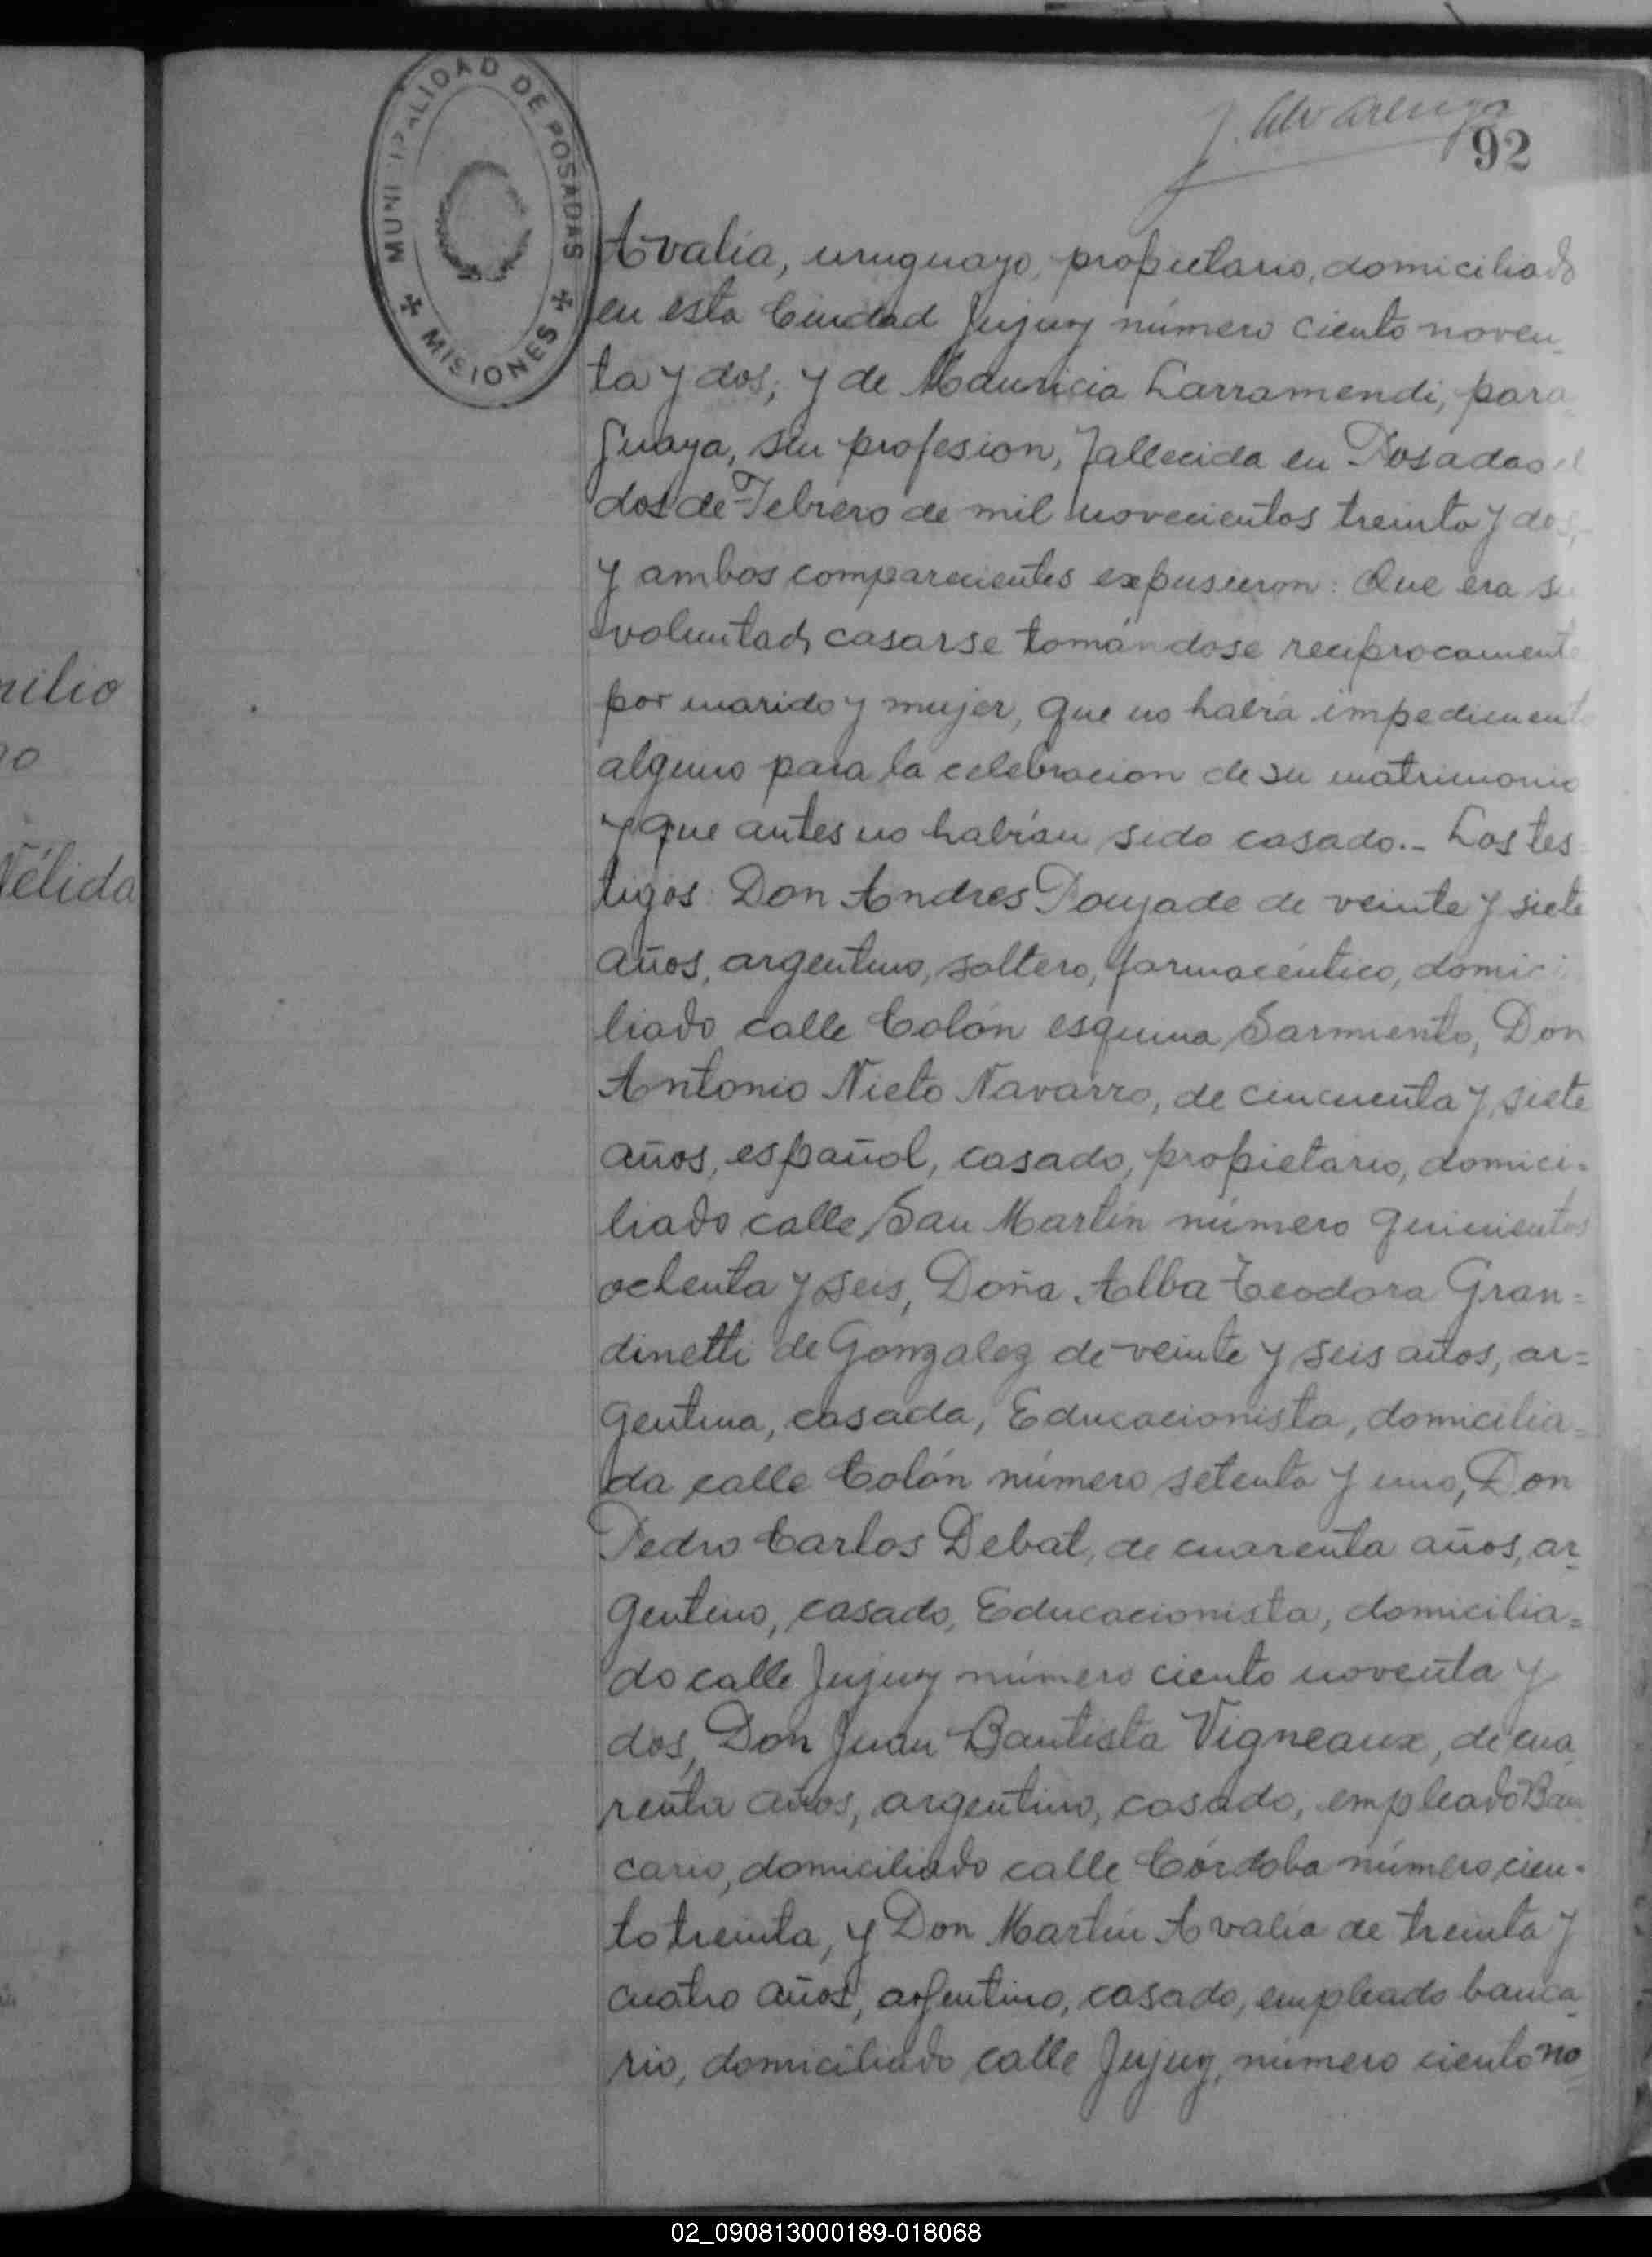 J. Alvarenga
92
MUNICIPALIDAD DE POSADAS
MISIONES
Avalía, uruguayo, propietario, domiciliado
en esta Ciudad Jujuy número ciento noven-
ta y dos; y de Mauricia Larramendi, para-
guaya, sin profesion, fallecida en Posadas el
dos de Febrero de mil novecientos treinta y dos,
y ambos comparecientes expusieron: Que era su
voluntad casarse tomándose reciprocamente
por marido y mujer, que no había impedimento
alguno para la celebracion de su matrimonio
y que antes no habían sido casado.- Los tes=
tigos Don Andres Poujade de veinte y siete
años, argentino, soltero, farmacéutico, domici
liado calle Colón esquina Sarmiento, Don
Antonio Nieto Navarro, de cincuenta y siete
años, español, casado, propietario, domici-
liado calle San Martín número quinientos
ochenta y seis, Doña Alba Teodora Gran=
dinetti de Gonzalez de veinte y seis años, ar=
gentina, casada, Educacionista, domicilia=
da calle Colón número setenta y uno, Don
Pedro Carlos Debat, de cuarenta años, ar-
gentino, casado, Educacionista, domicilia=
do calle Jujuy número ciento noventa y
dos, Don Juan Bautista Vigneaux, de cua
renta años, argentino, casado, empleado Ban
cario, domiciliado calle Córdoba número cien-
to treinta, y Don Martín Avalía de treinta y
cuatro años, argentino, casado, empleado banca-
rio, domiciliado calle Jujuy, número ciento no
nilio
go
Nélida
02_090813000189-018068